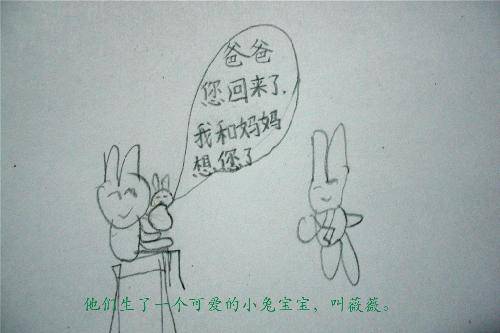 爸爸
您回来了.
我和妈妈
想您了
他们生了一个可爱的小兔宝宝，叫薇薇。